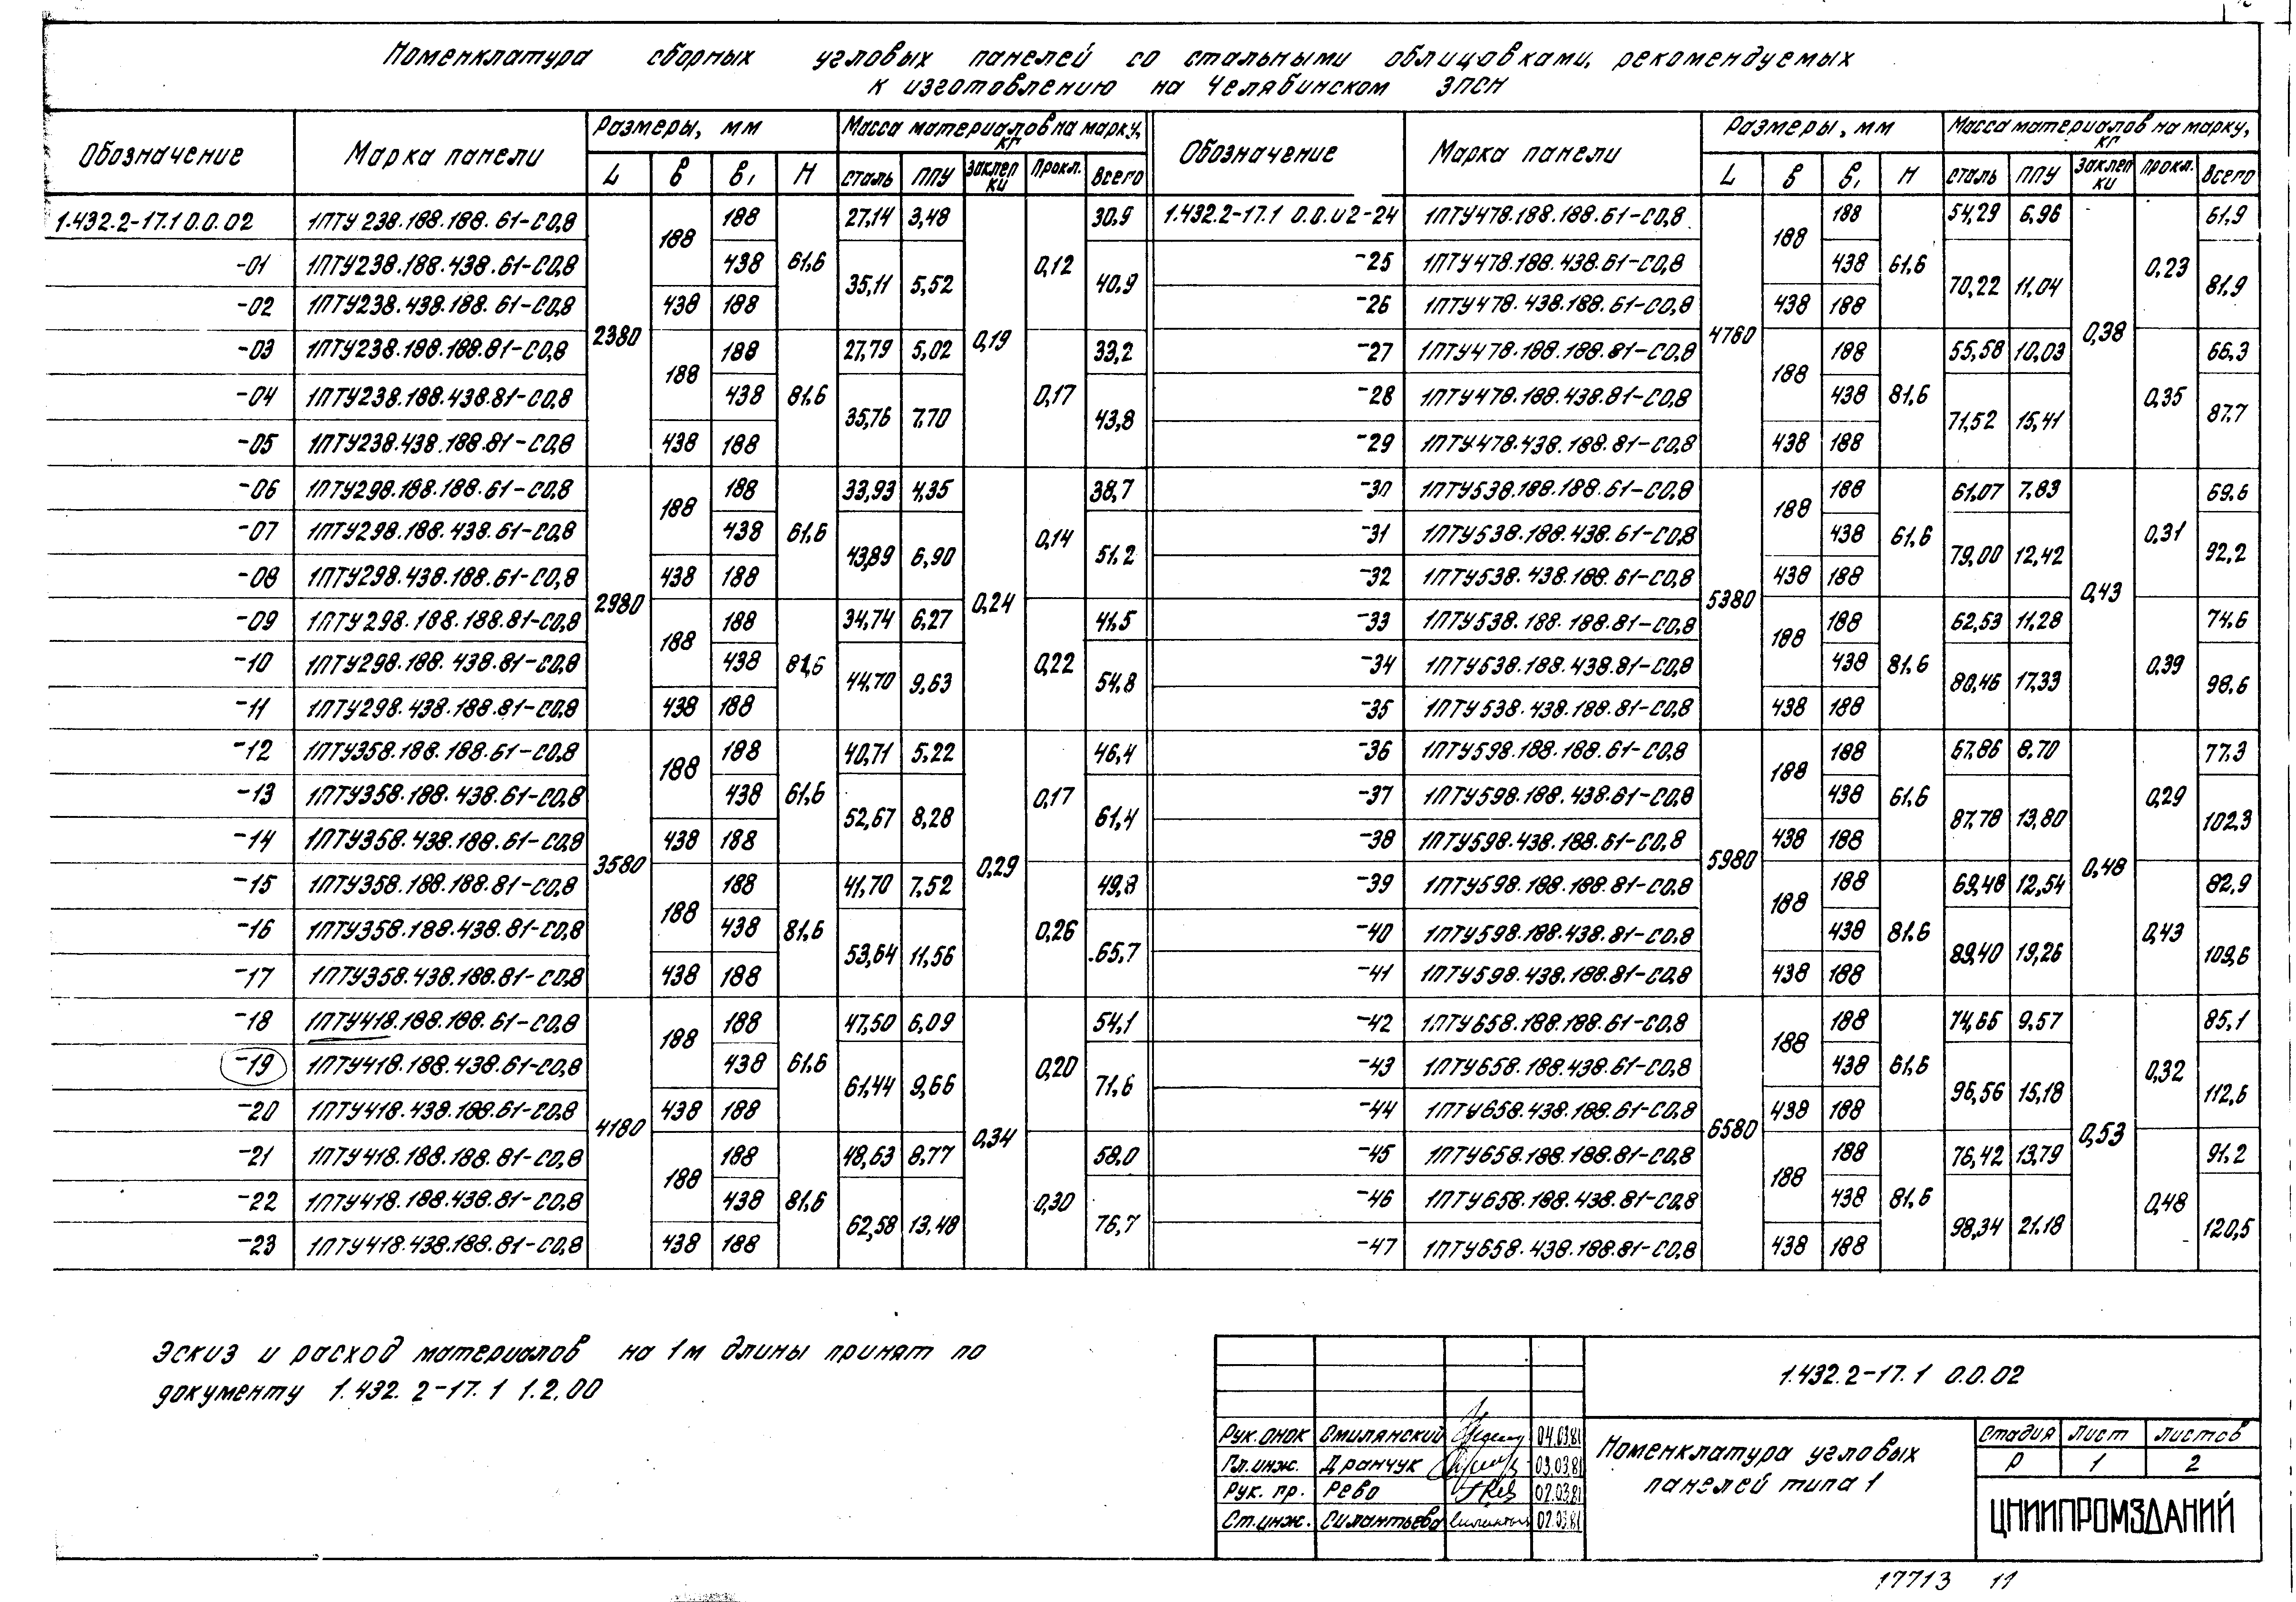 Номенклатура сборных угловых панелей со стальными облицовками, рекомендуемых
к изготовлению на Челябинском ЗПСН
Обозначение Марка панели Размеры, мм Масса материалов на марку, кг Обозначение Марка панели Размеры, мм Масса материалов на марку, кг
L В В1 Н сталь ППУ Заклепки Прокл. Всего L В В1 Н сталь ППУ Заклепки Прокл. Всего
1.432.2-17.1 0.0.02 1ПТУ 238.188.188.61-С0,8 2380 188 188 61,6 27,14 3,48 0,19 0,12 30,9 1.432.2-17.1 0.0.02-24 1ПТУ478.188.188.61-С0,8 4780 188 188 61,6 54,29 6,96 0,38 0,23 61,9
-01 1ПТУ238.188.438.61-С0,8 438 35,11 5,52 40,9 -25 1ПТУ478.188.438.61-С0,8 438 70,22 11,04 81,9
-02 1ПТУ238.438.188.61-С0,8 438 188 -26 1ПТУ478.438.188.61-С0,8 438 188
-03 1ПТУ238.188.188.81-С0,8 188 188 81,6 27,79 5,02 0,17 33,2 -27 1ПТУ478.188.188.81-С0,8 188 188 81,6 55,58 10,03 0,35 66,3
-04 1ПТУ238.188.438.81-С0,8 438 35,76 7,70 43,8 -28 1ПТУ478.188.438.81-С0,8 438 71,52 15,41 87,7
-05 1ПТУ238.438.188.81-С0,8 438 188 -29 1ПТУ478.438.188.81-С0,8 438 188
-06 1ПТУ298.188.188.61-С0,8 2980 188 188 61,6 33,93 4,35 0,24 0,14 38,7 -30 1ПТУ538.188.188.61-С0,8 5380 188 188 61,6 61,07 7,83 0,43 0,31 69,6
-07 1ПТУ298.188.438.61-С0,8 438 43,89 6,90 51,2 -31 1ПТУ538.188.438.61-С0,8 438 79,00 12,42 92,2
-08 1ПТУ298.438.188.61-С0,8 438 188 -32 1ПТУ538.438.188.61-С0,8 438 188
-09 1ПТУ298.188.188.81-С0,8 188 188 81,6 34,74 6,27 0,22 41,5 -33 1ПТУ538.188.188.81-С0,8 188 188 81,6 62,53 11,28 0,39 74,6
-10 1ПТУ298.188.438.81-С0,8 438 44,70 9,63 54,8 -34 1ПТУ538.188.438.81-С0,8 438 80,46 17,33 98,6
-11 1ПТУ298.438.188.81-С0,8 438 188 -35 1ПТУ538.438.188.81-С0,8 438 188
-12 1ПТУ358.188.188.61-С0,8 3580 188 188 61,6 40,71 5,22 0,29 0,17 46,4 -36 1ПТУ598.188.188.61-С0,8 5980 188 188 61,6 67,86 8,70 0,48 0,29 77,3
-13 1ПТУ358.188.438.61-С0,8 438 52,67 8,28 61,4 -37 1ПТУ598.188.438.61-С0,8 438 87,78 13,80 102,3
-14 1ПТУ358.438.188.61-С0,8 438 188 -38 1ПТУ598.438.188.61-С0,8 438 188
-15 1ПТУ358.188.188.81-С0,8 188 188 81,6 41,70 7,52 0,26 49,8 -39 1ПТУ598.188.188.81-С0,8 188 188 81,6 69,48 12,54 0,43 82,9
-16 1ПТУ358.188.438.81-С0,8 438 53,64 11,56 65,7 -40 1ПТУ598.188.438.81-С0,8 438 89,40 19,26 109,6
-17 1ПТУ358.438.188.81-С0,8 438 188 -41 1ПТУ598.438.188.81-С0,8 438 188
-18 1ПТУ418.188.188.61-С0,8 4180 188 188 61,6 47,50 6,09 0,34 0,20 54,1 -42 1ПТУ658.188.188.61-С0,8 6580 188 188 61,6 74,66 9,57 0,53 0,32 85,1
-19 1ПТУ418.188.438.61-С0,8 438 61,44 9,66 71,6 -43 1ПТУ658.188.438.61-С0,8 438 96,56 15,18 112,6
-20 1ПТУ418.438.188.61-С0,8 438 188 -44 1ПТУ658.438.188.61-С0,8 438 188
-21 1ПТУ418.188.188.81-С0,8 188 188 81,6 48,63 8,77 0,30 58,0 -45 1ПТУ658.188.188.81-С0,8 188 188 81,6 76,42 13,79 0,48 91,2
-22 1ПТУ418.188.438.81-С0,8 438 62,58 13,48 76,7 -46 1ПТУ658.188.438.81-С0,8 438 98,34 21,18 120,5
-23 1ПТУ418.438.188.81-С0,8 438 188 -47 1ПТУ658.438.188.81-С0,8 438 188
Эскиз и расход материалов на 1м длины принят по
документу 1.432.2-17.1 1.2.00
1.432.2-17.1 0.0.02
Рук. ОНОК Смилянский 04.03.81
Гл. инж. Дранчук 03.03.81
Рук. пр. Рево 02.03.81
Ст. инж. Силантьева 02.03.81
Номенклатура угловых
панелей типа 1
Стадия Лист Листов
Р 1 2
ЦНИИПРОМЗДАНИЙ
17713 11